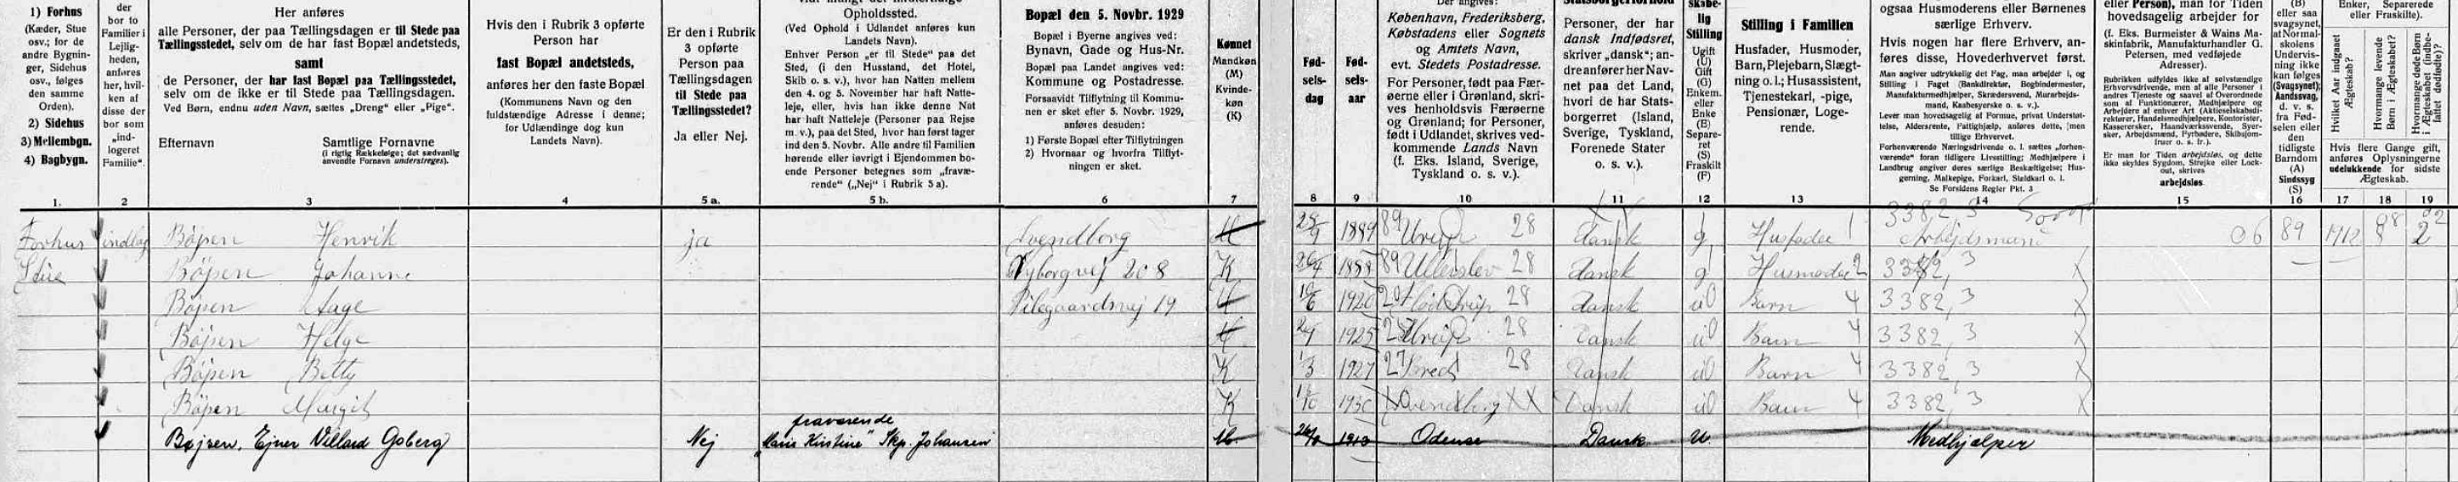 1) Forhus
(Kæder, Stue
osv.; for de
andre Bygnin-
ger, Sidehus
osv., følges
den samme
Orden).
2) Sidehus
3) Mellembgn.
4) Bagbygn.
der
bor to
Familier i
Lejlig-
heden,
anføres
her, hvil-
ken af
disse der
bor som
„ind-
logeret
Familie“.
Her anføres
alle Personer, der paa Tællingsdagen er til Stede paa
Tællingsstedet, selv om de har fast Bopæl andetsteds,
samt
de Personer, der har fast Bopæl paa Tællingsstedet,
selv om de ikke er til Stede paa Tællingsdagen.
Ved Børn, endnu uden Navn, sættes „Dreng“ eller „Pige“.
Efternavn Samtlige Fornavne
(i rigtig Rækkefølge; det sædvanlig
anvendte Fornavn understreges).
Hvis den i Rubrik 3 opførte
Person har
fast Bopæl andetsteds,
anføres her den faste Bopæl
(Kommunens Navn og den
fuldstændige Adresse i denne;
for Udlændinge dog kun
Landets Navn).
Er den i Rubrik
3 opførte
Person paa
Tællingsdagen
til Stede paa
Tællingsstedet?
Ja eller Nej.
Opholdssted.
(Ved Ophold i Udlandet anføres kun
Landets Navn).
Enhver Person „er til Stede“ paa det
Sted, (i den Husstand, det Hotel,
Skib o. s. v.), hvor han Natten mellem
den 4. og 5. November har haft Natte-
leje, eller, hvis han ikke denne Nat
har haft Natteleje (Personer paa Rejse
m. v.), paa det Sted, hvor han først tager
ind den 5. Novbr. Alle andre til Familien
hørende eller iøvrigt i Ejendommen bo-
ende Personer betegnes som „fravæ-
rende“ („Nej“ i Rubrik 5 a).
Bopæl den 5. Novbr. 1929
Bopæl i Byerne angives ved:
Bynavn, Gade og Hus-Nr.
Bopæl paa Landet angives ved:
Kommune og Postadresse.
Forsaavidt Tilflytning til Kommu-
nen er sket efter 5. Novbr. 1929,
anføres desuden:
1) Første Bopæl efter Tilflytningen
2) Hvornaar og hvorfra Tilflyt-
ningen er sket.
Kønnet
Mandkøn
(M)
Kvinde-
køn
(K)
Fød-
sels-
dag
Fød-
sels-
aar
Der angives:
København, Frederiksberg,
Købstadens eller Sognets
og Amtets Navn,
evt. Stedets Postadresse.
For Personer, født paa Fær-
øerne eller i Grønland, skri-
ves henholdsvis Færøerne
og Grønland; for Personer,
født i Udlandet, skrives ved-
kommende Lands Navn
(f. Eks. Island, Sverige,
Tyskland o. s. v.).
Personer, der har
dansk Indfødsret,
skriver „dansk“; an-
dre anfører her Nav-
net paa det Land,
hvori de har Stats-
borgerret (Island,
Sverige, Tyskland,
Forenede Stater
o. s. v.).
lig
Stilling
Ugift
(U)
Gift
(G)
Enkem.
eller
Enke
(E)
Separe-
ret
(S)
Fraskilt
(F)
Stilling i Familien
Husfader, Husmoder,
Barn, Plejebarn, Slægt-
ning o. l.; Husassistent,
Tjenestekarl, -pige,
Pensionær, Loge-
rende.
ogsaa Husmoderens eller Børnenes
særlige Erhverv.
Hvis nogen har flere Erhverv, an-
føres disse, Hovederhvervet først.
Man angiver udtrykkelig det Fag, man arbejder i, og
Stilling i Faget (Bankdirektør, Bogbindermester,
Manufakturmedhjælper, Skrædersvend, Murarbejds-
mand, Kaabesyerske o. s. v.).
Lever man hovedsagelig af Formue, privat Understøt-
telse, Aldersrente, Fattighjælp, anføres dette, men
tillige Erhvervet.
Forhenværende Næringsdrivende o. l. sættes „forhen-
værende“ foran tidligere Livsstilling; Medhjælpere i
Landbrug angiver deres særlige Beskæftigelse; Hus-
gerning, Malkepige, Forkarl, Staldkarl o. l.
Se Forsidens Regler Pkt. 3
eller Person), man for Tiden
hovedsagelig arbejder for
(f. Eks. Burmeister & Wains Ma-
skinfabrik, Manufakturhandler G.
Petersen, med vedføjede
Adresser).
Er man for Tiden arbejdsløs, og dette
ikke skyldes Sygdom, Strejke eller Lock-
out, skrives
arbejdsløs.
(B)
eller saa
svagsynet,
at Normal-
skolens
Undervis-
ning ikke
kan følges
(Svagsynet);
Aandssvag,
d. v. s.
fra Fød-
selen eller
den
tidligste
Barndom
(A)
Sindssyg
(S)
Enker, Separerede
eller Fraskilte).
Hvilket Aar indgaaet
Ægteskab?
Hvormange levende
Børn i Ægteskabet?
Hvormange døde Børn
i Ægteskabet (indbe-
fattet dødfødte)?
Hvis flere Gange gift,
anføres Oplysningerne
udelukkende for sidste
Ægteskab.
1. 2 3 4 5 a. 5 b. 6 7 8 9 10 11 12 13 14 15 16 17 18 19
3382,3
Forhus indlog Böjsen Henrik ja Svendborg M 1889 89 Urup 28 dansk g Husfader 1 Arbejdsmand 06 89 1912 8 2
Stue Böjsen Johanne Nyborgvej 208 K 1888 89 Ullerslev 28 dansk g Husmoder 2 3382,3
Böjsen Aage Pilegaardsvej 19 M 1920 28 dansk u Barn 4 3382,3
Böjsen Helge M 1925 Urup 28 Dansk u Barn 4 3382,3
Böjsen Betty K 1/3 1927 27 28 Dansk u Barn 4 3382,3
Böjsen Margit K 1930 Svendborg XX Dansk u Barn 4 3382,3
fraværende
Bøjsen, Ejner Villard Goberg Nej „Marie Kirstine“ Skp. Johansen M. 1913 Odense Dansk U. Medhjælper